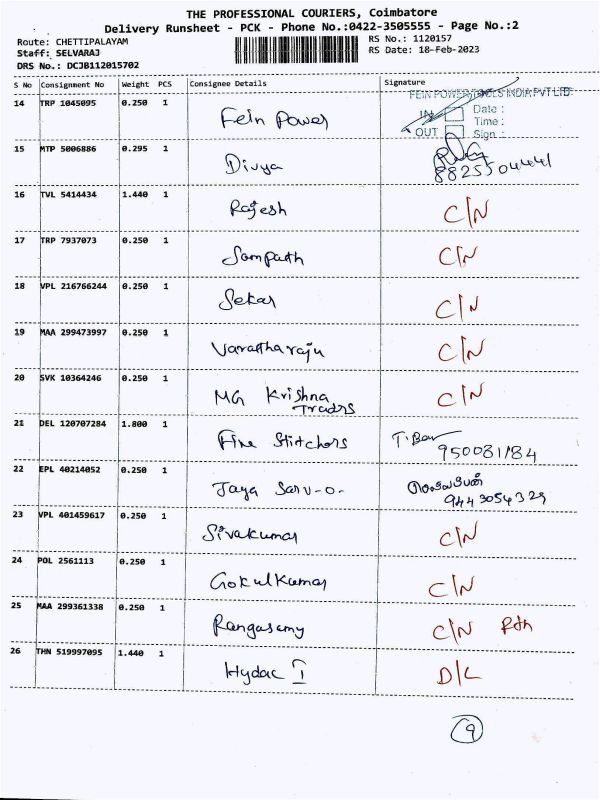 THE PROFESSIONAL COURIERS, Coimbatore
Delivery Runsheet - PCK - Phone No.:0422-3505555 - Page No.:2
Route: CHETTIPALAYAM
Staff: SELVARAJ
DRS No.: DCJB112015702
RS No.: 1120157
RS Date: 18-Feb-2023
S No Consignment No Weight PCS Consignee Details Signature
14 TRP 1045095 0.250 1 Fein Power FEIN POWER TOOLS INDIA PVT LTD
IN Date :
Time :
OUT Sign :
15 MTP 5006886 0.295 1 Divya
8825504441
16 TVL 5414434 1.440 1 Rajesh C/N
17 TRP 7937073 0.250 1 Sampath C/N
18 VPL 216766244 0.250 1 Sekar C/N
19 MAA 299473997 0.250 1 Varatharaju C/N
20 SVK 10364246 0.250 1 MG Krishna C/N
Tradrs
21 DEL 120707284 1.800 1 Fine Stitchers
950081184
22 EPL 40214052 0.250 1 Jaya Sarv-o-
9443054329
23 VPL 401459617 0.250 1 Sivakumar C/N
24 POL 2561113 0.250 1 Gokulkumar C/N
25 MAA 299361338 0.250 1 Rangasamy C/N Rth
26 THN 519997095 1.440 1 Hydac I D/L
9